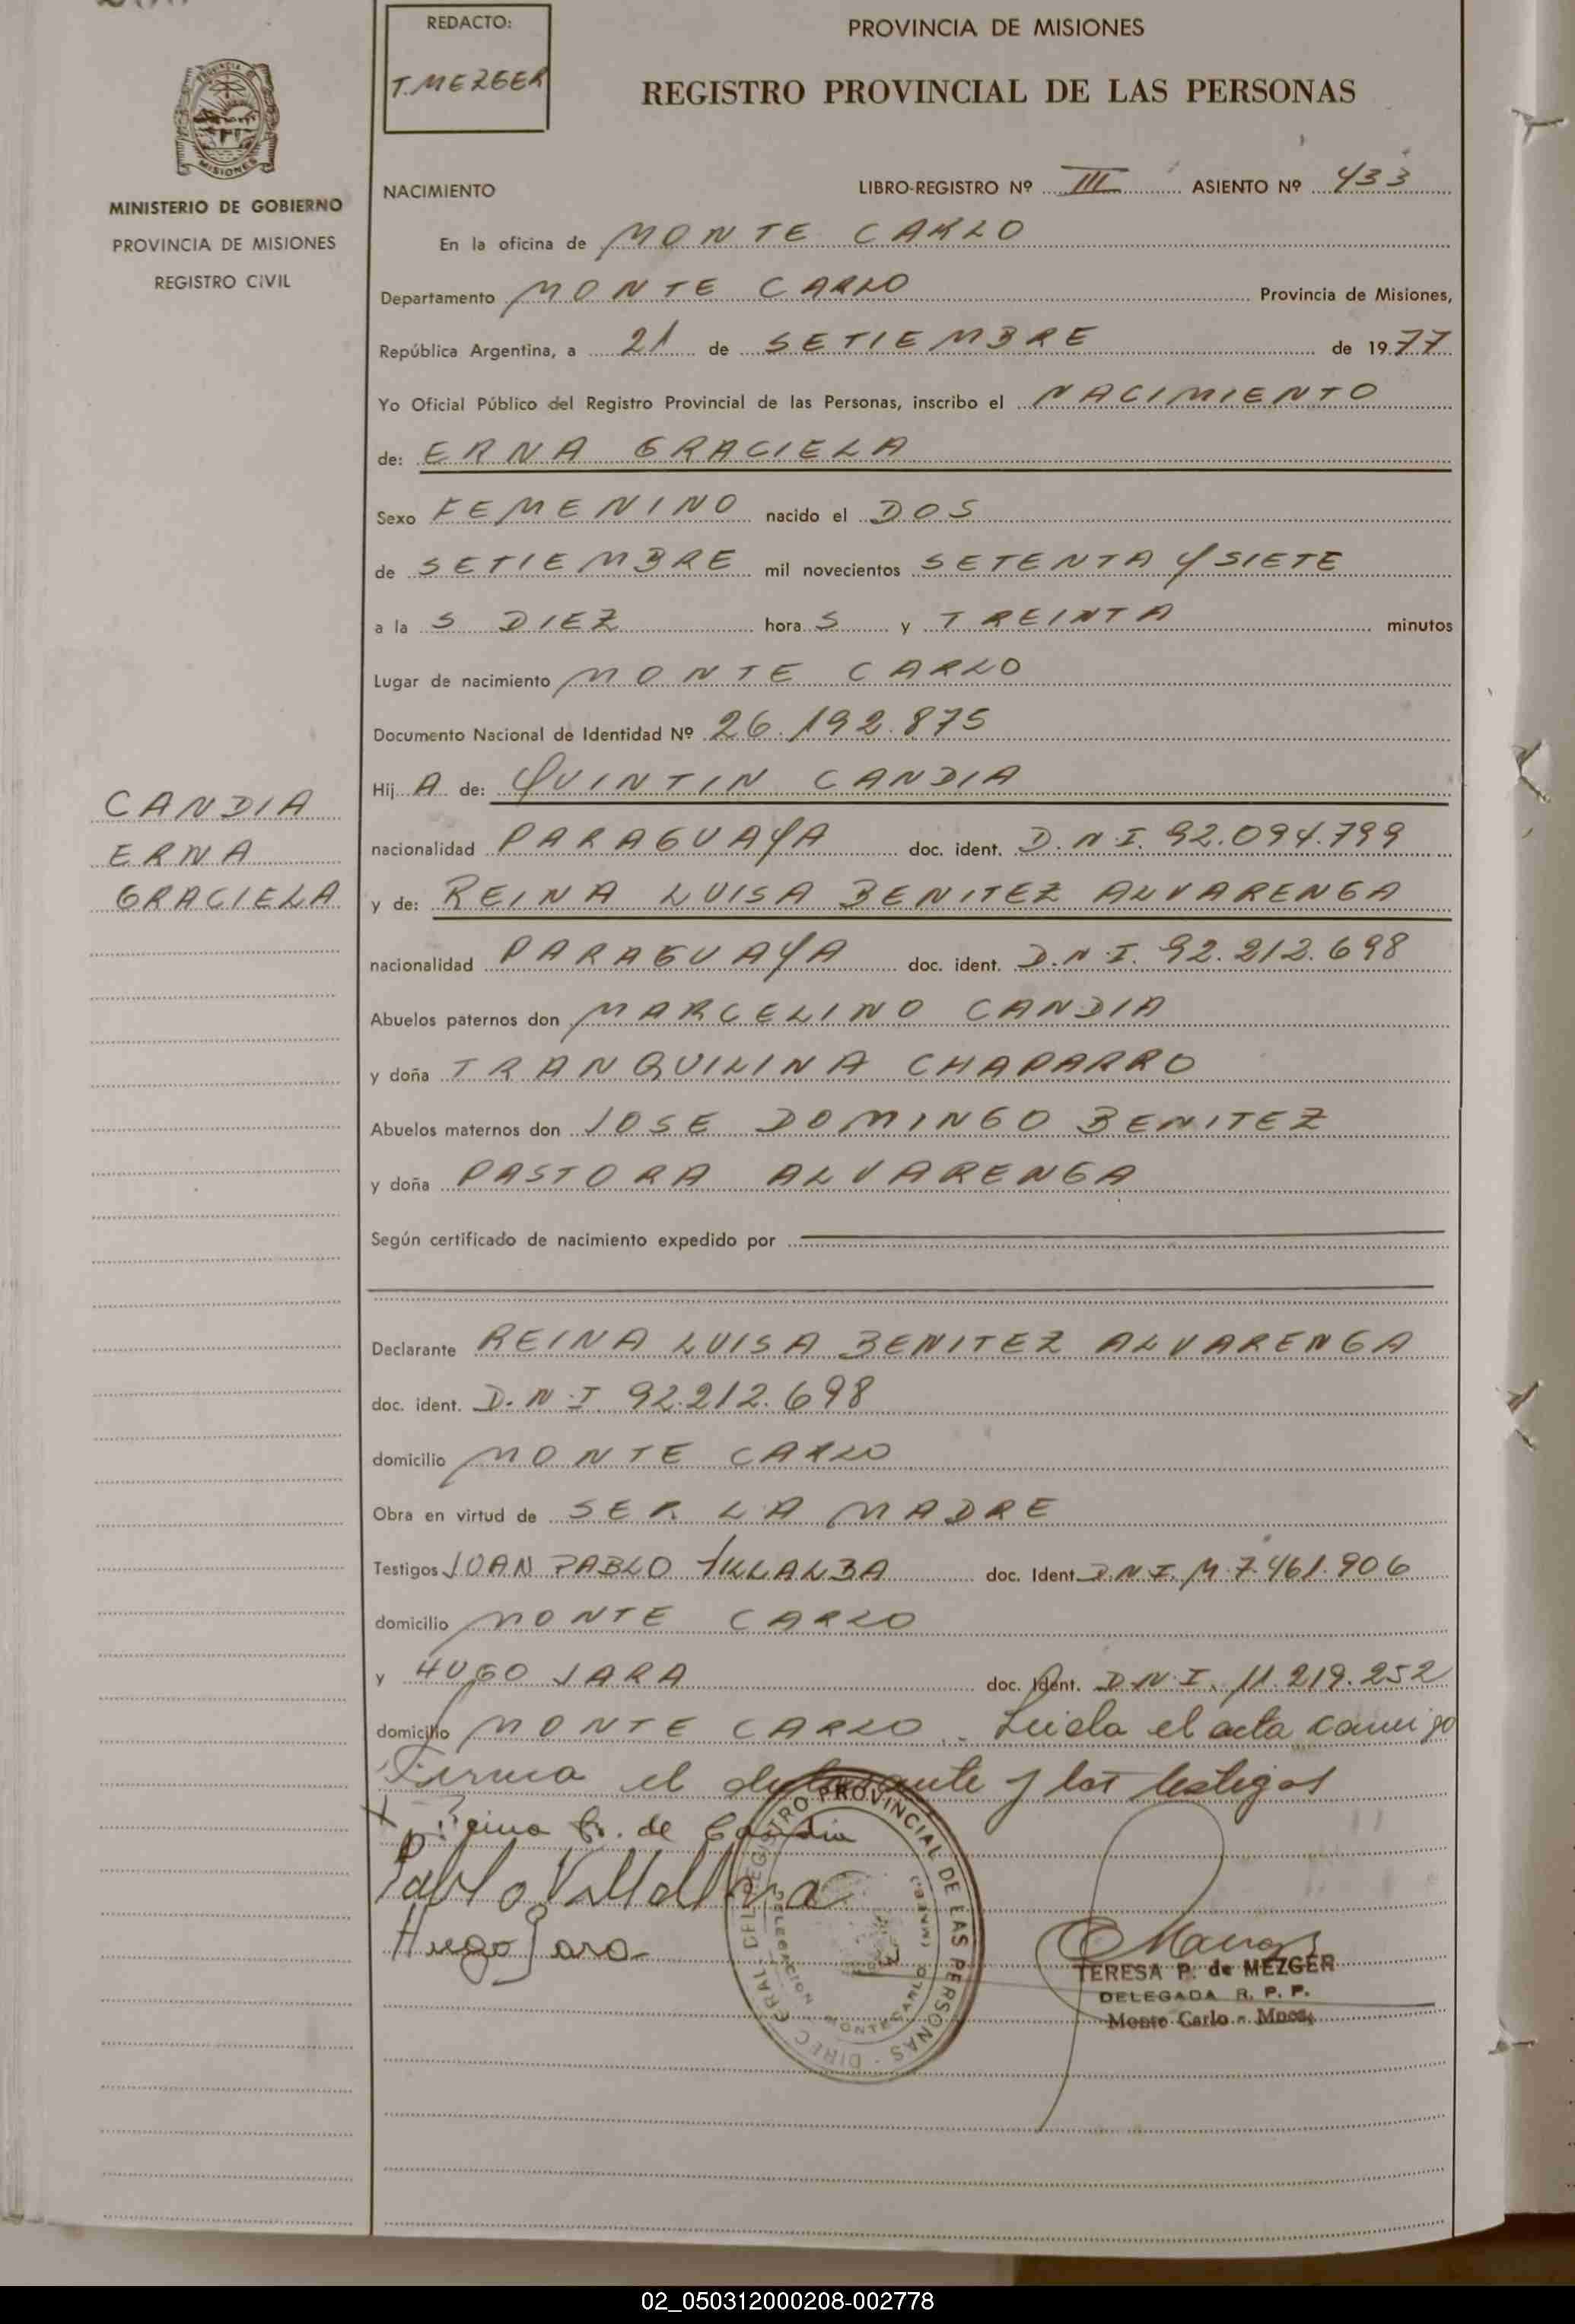 REDACTO:
T. MEZGER
PROVINCIA DE MISIONES
REGISTRO PROVINCIAL DE LAS PERSONAS
MISIONES
MINISTERIO DE GOBIERNO
PROVINCIA DE MISIONES
REGISTRO CIVIL
NACIMIENTO LIBRO-REGISTRO Nº III ASIENTO Nº 433
En la oficina de MONTE CARLO
Departamento MONTE CARLO Provincia de Misiones,
República Argentina, a 21 de SETIEMBRE de 1977
Yo Oficial Público del Registro Provincial de las Personas, inscribo el NACIMIENTO
de: ERNA GRACIELA
Sexo FEMENINO nacido el DOS
de SETIEMBRE mil novecientos SETENTA Y SIETE
a la S DIEZ hora S y TREINTA minutos
Lugar de nacimiento MONTE CARLO
Documento Nacional de Identidad Nº 26.192.875
Hij A de: QUINTIN CANDIA
CANDIA
ERNA
GRACIELA
nacionalidad PARAGUAYA doc. ident. D.N.I. 92.094.799
y de: REINA LUISA BENITEZ ALVARENGA
nacionalidad PARAGUAYA doc. ident. D.N.I. 92.212.698
Abuelos paternos don MARCELINO CANDIA
y doña TRANQUILINA CHAPARRO
Abuelos maternos don JOSE DOMINGO BENITEZ
y doña PASTORA ALVARENGA
Según certificado de nacimiento expedido por
Declarante REINA LUISA BENITEZ ALVARENGA
doc. ident. D.N.I. 92.212.698
domicilio MONTE CARLO
Obra en virtud de SER LA MADRE
Testigos JUAN PABLO VILLALBA doc. Ident. D.N.I. M.7.461.906
domicilio MONTE CARLO
y HUGO JARA doc. Ident. D.N.I. 11.219.252
domicilio MONTE CARLO.- Leida el acta conmigo
Firma el declarante y los testigos
X Reina B. de Candia
Pablo Villalba
Hugo Jara
REGISTRO PROVINCIAL DE LAS PERSONAS - DIREC ERAL DEL
DELEGACION MONTECARLO (MNES.)
TERESA P. de MEZGER
DELEGADA R. P. P.
Monte Carlo - Mnes.
02_050312000208-002778